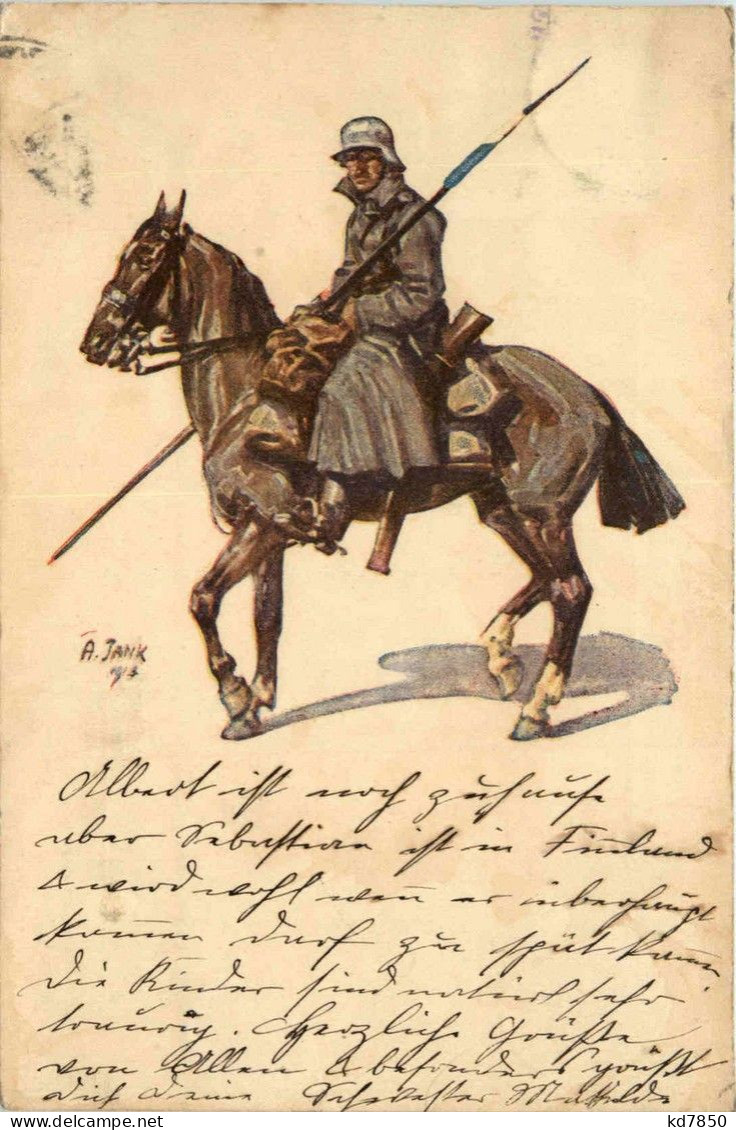 A. JANK
Albert ist noch zuhause
aber Sebastian ist in Finland
& wird wohl wen̄ er überhaupt
kom̄en darf zu spät kom̄en.
Die Kinder sind natürl sehr
traurig. Herzliche Grüße
von Allen & besonders grüßt
dich Deine Schwester Mathilde
kd7850